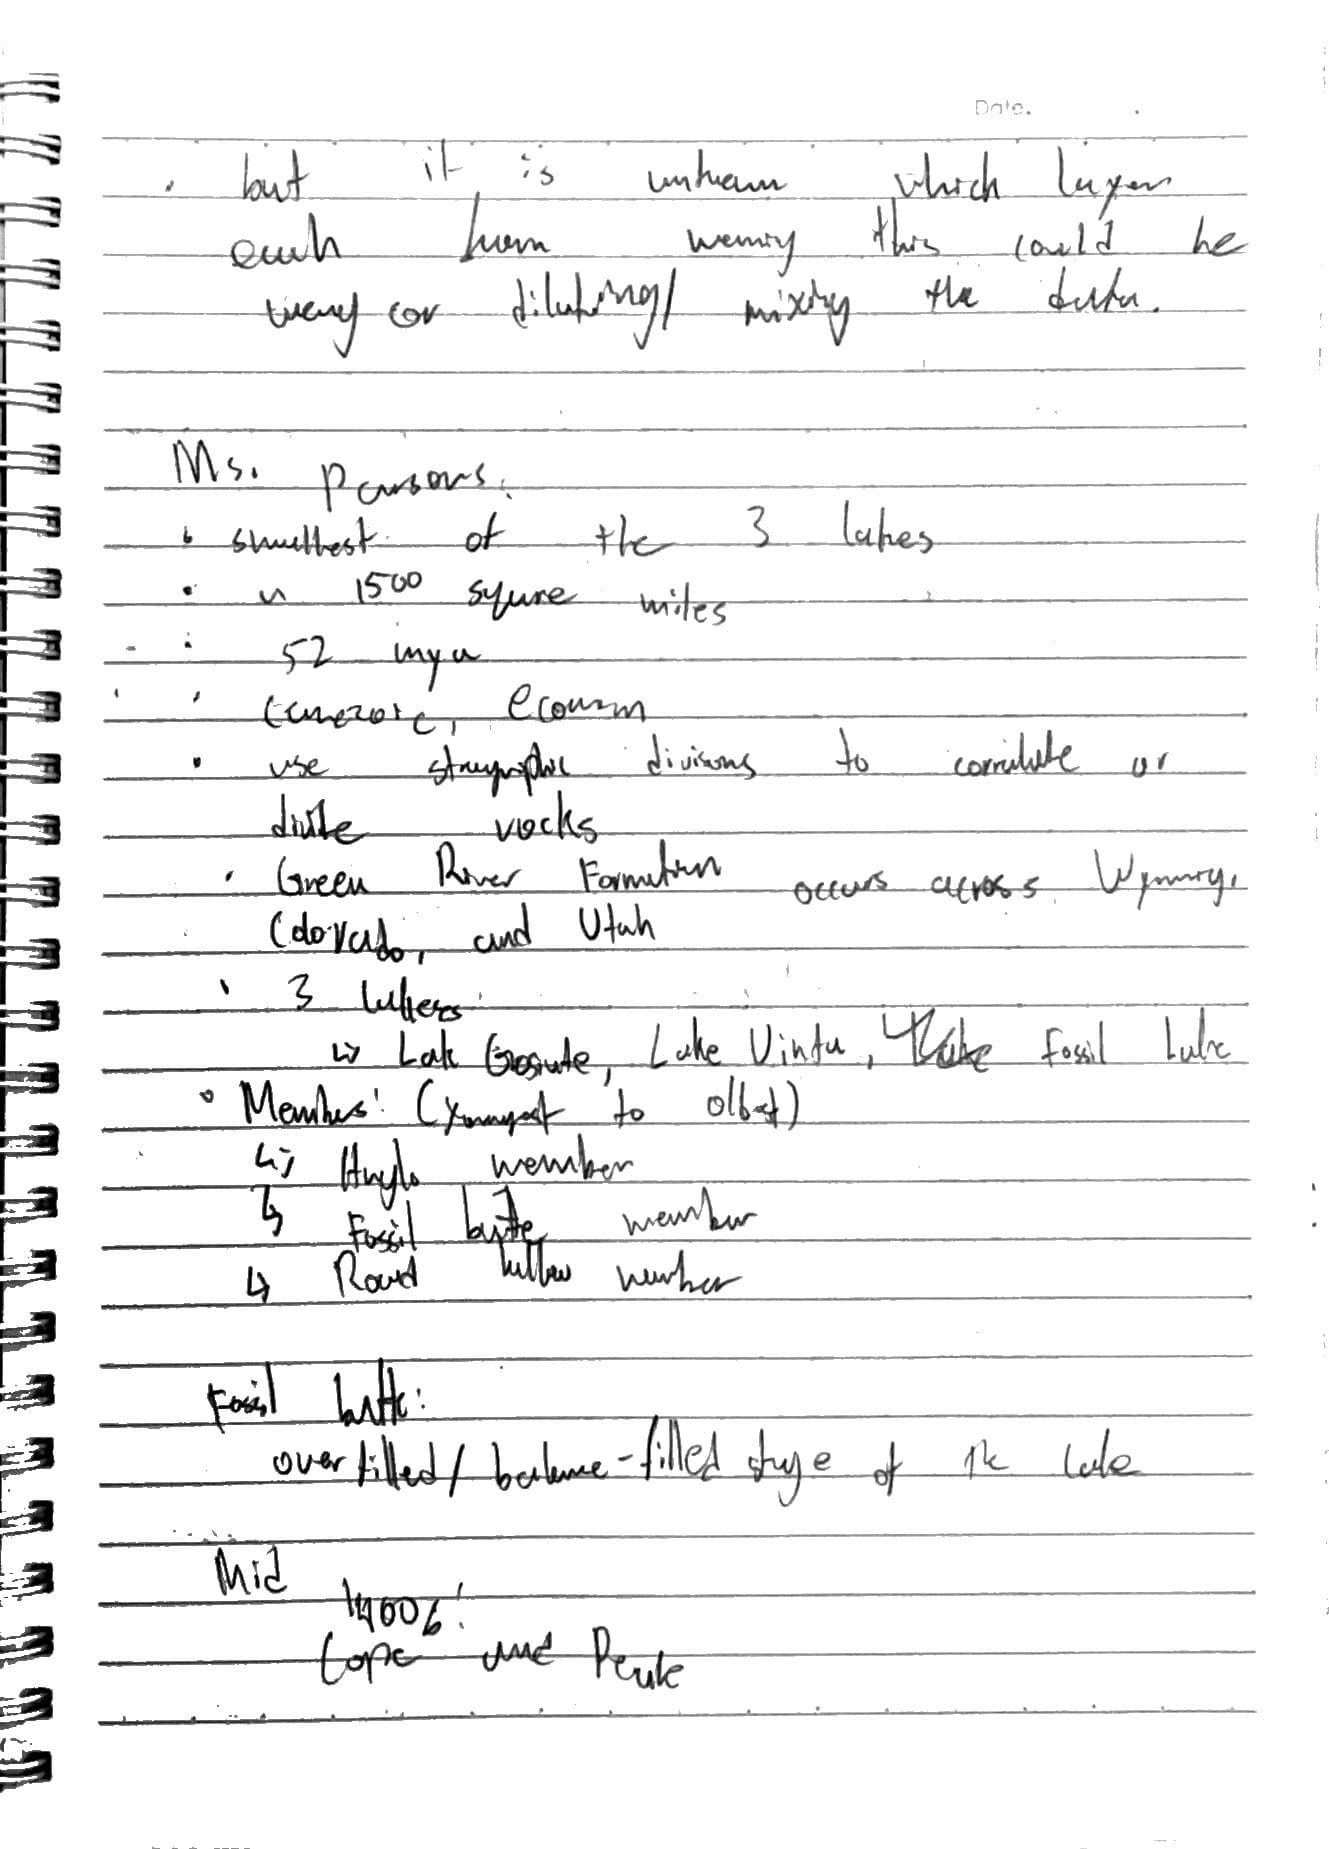 Date.
but it is unknown which layer
each from meaning this could be
or diluting/ mixing the data.
Ms. Parsons:
smallest of the 3 lakes
1500 square miles
52 mya
Cenezoic,
use divisions to correlate or
divide rocks
Green River Formation occurs across Wyoming,
Colorado, and Utah
3 lakes
↳ Lak Gosiute, Lake Uinta, Fossil Lake
Members: (Youngest to oldest)
↳ Anglo member
↳ Fossil butte member
↳ Road hollow member
Fossil butte:
overfilled/balance-filled stage of the lake
Mid
Cope and Peale